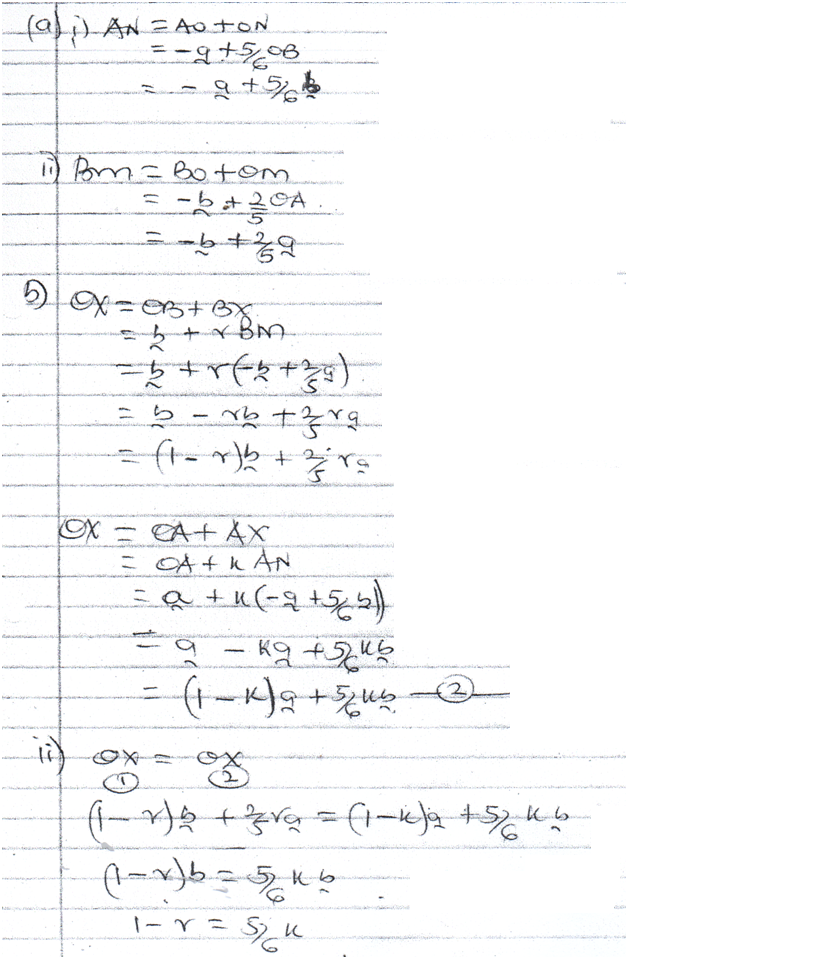 (a) i) AN = AO + ON
= -a + 5/6 OB
= - a + 5/6 b
ii) BM = BO + OM
= -b + 2/5 OA
= -b + 2/5 a
b) OX = OB + BX
= b + r BM
= b + r(-b + 2/5 a)
= b - rb + 2/5 ra
= (1 - r)b + 2/5 ra
OX = OA + AX
= OA + K AN
= a + K(-a + 5/6 b)
= a - Ka + 5/6 Kb
= (1 - K)a + 5/6 Kb — ②
ii) OX = OX
① ②
(1 - r)b + 2/5 ra = (1 - K)a + 5/6 K b
(1 - r)b = 5/6 K b
1 - r = 5/6 K